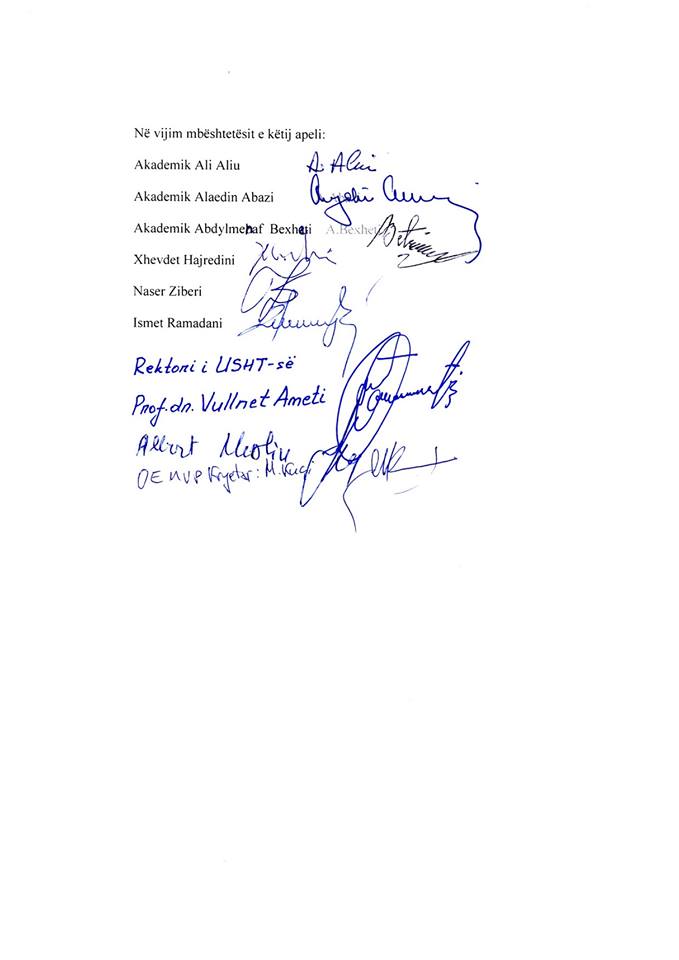 Në vijim mbështetësit e këtij apeli:
Akademik Ali Aliu A. Aliu
Akademik Alaedin Abazi
Akademik Abdylmenaf Bexheti A.Bexheti
Xhevdet Hajredini
Naser Ziberi
Ismet Ramadani
Rektori i USHT-së
Prof.dr. Vullnet Ameti
Albert
OE MVP Kryetar: M.